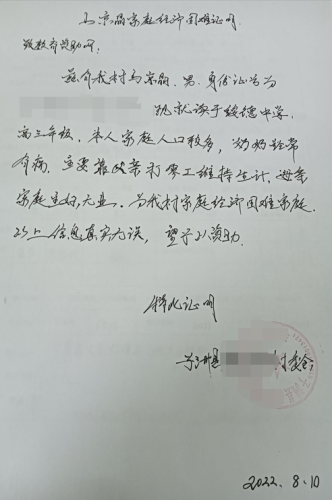 马京晶家庭经济困难证明
致教育资助网:
兹介我村马京晶,男,身份证号为
现就读于峻德中学,
高三年级,本人家庭人口较多,奶奶经常
有病,主要靠父亲打零工维持生计,母亲
家庭主妇,无业,为我村家庭经济困难家庭,
以上信息真实无误,望予以资助。
特此证明
村委会
2022.8.10